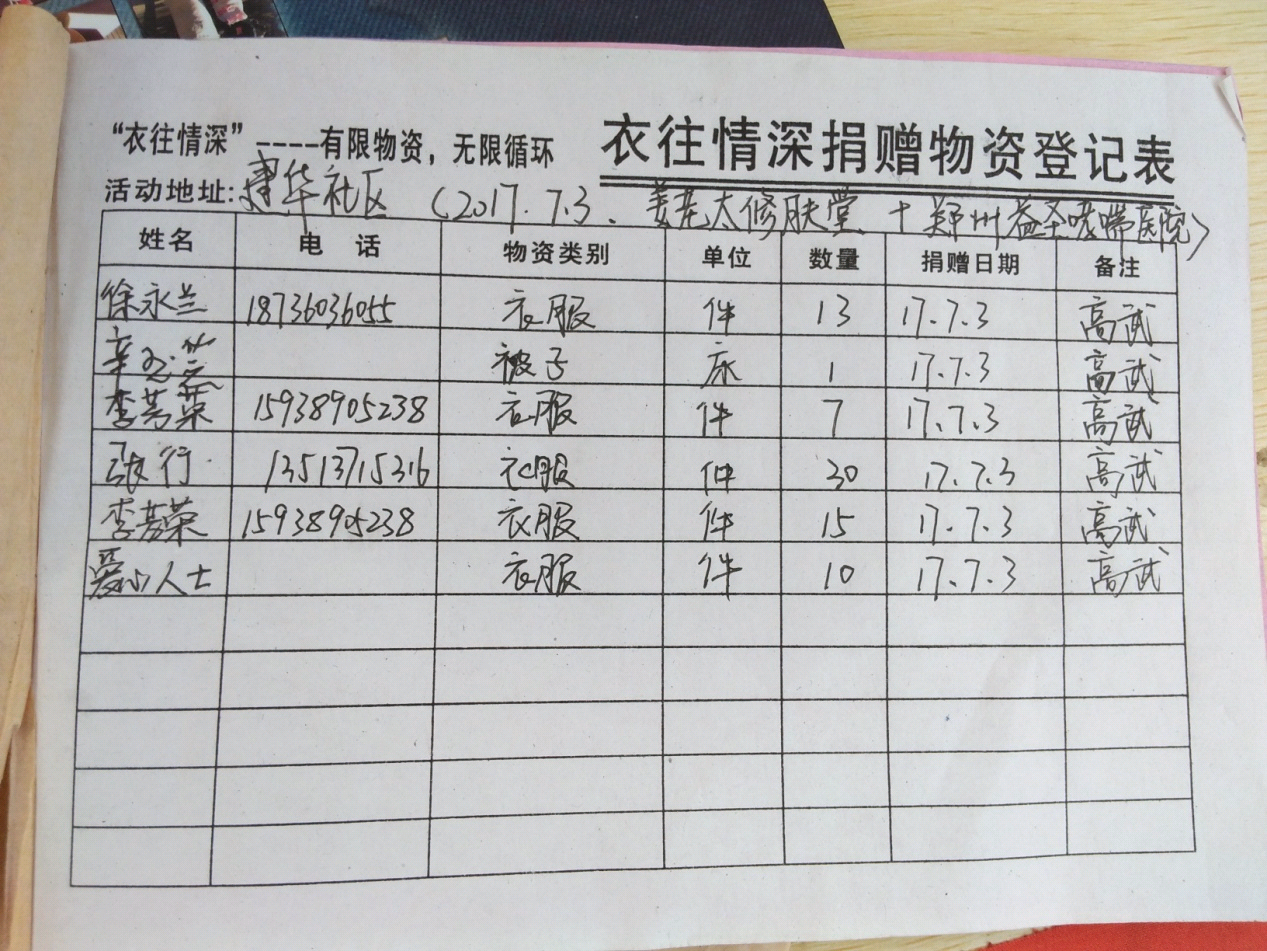 “衣往情深”----有限物资，无限循环
衣往情深捐赠物资登记表
活动地址:建华社区 (2017.7.3. 姜老太修肤堂 + 郑州益圣哮喘医院)
姓名 电话 物资类别 单位 数量 捐赠日期 备注
徐永兰 18736036055 衣服 件 13 17.7.3 高武
辛 被子 床 1 17.7.3 高武
李芳荣 15938905238 衣服 件 7 17.7.3 高武
张行 13513715316 衣服 件 30 17.7.3 高武
李芳荣 15938905238 衣服 件 15 17.7.3 高武
爱心人士 衣服 件 10 17.7.3 高武